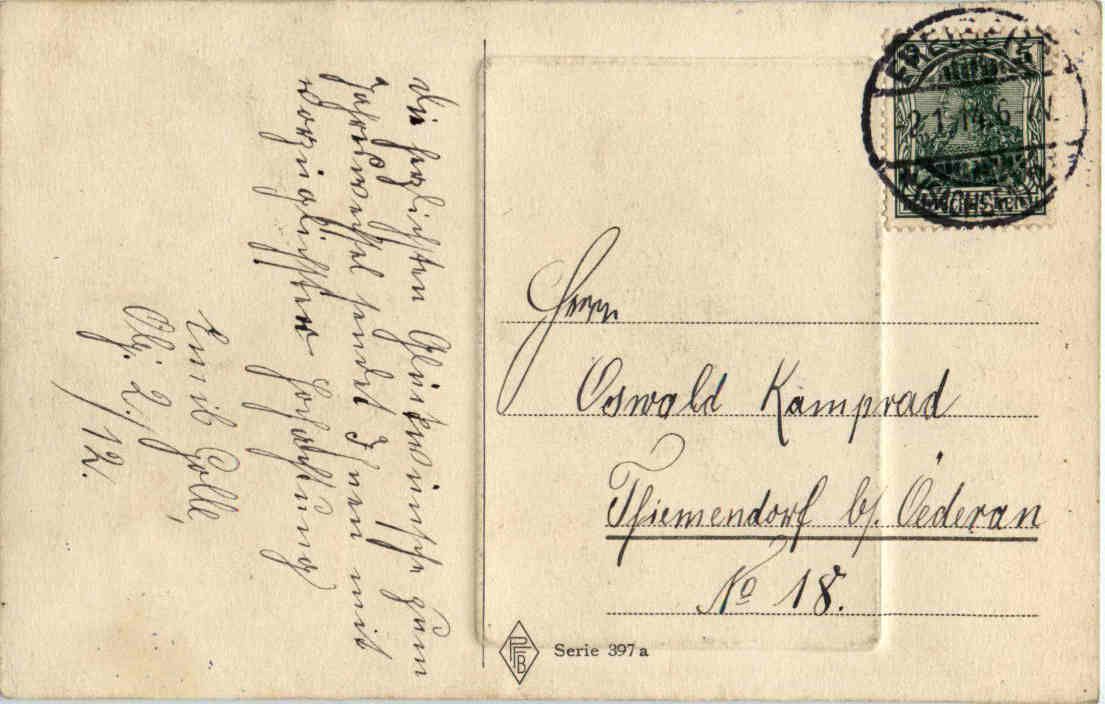 Die herzlichsten Glückwünsche zum
Jahreswechsel sendet Ihnen mit
vorzüglichster Hochachtung
Emil Golle,
2./12.
Herrn
Oswald Kamprad
Thiemendorf b/. Oederan
No 18.
5
2.1.14.6
SACHSEN
PFB
Serie 397 a